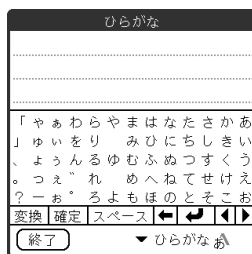 ひらがな
「ゃぁわらやまはなたさかあ
」ゅぃをり みひにちしきい
、ょぅんるゆむふぬつすくう
。っぇ゛れ めへねてせけえ
?ーぉ゜ろよもほのとそこお
変換 確定 スペース
終了 ▼ ひらがな あA